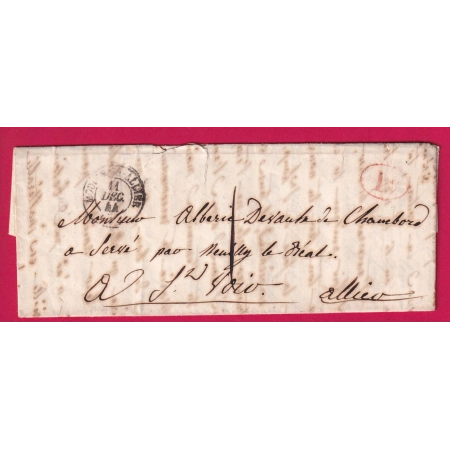 ALLIER
11
DEC.
44
1
Monsieur Alberic Devaulx de Chambord
a Serve par Neuilly le Réal.
A St Voir.
allier